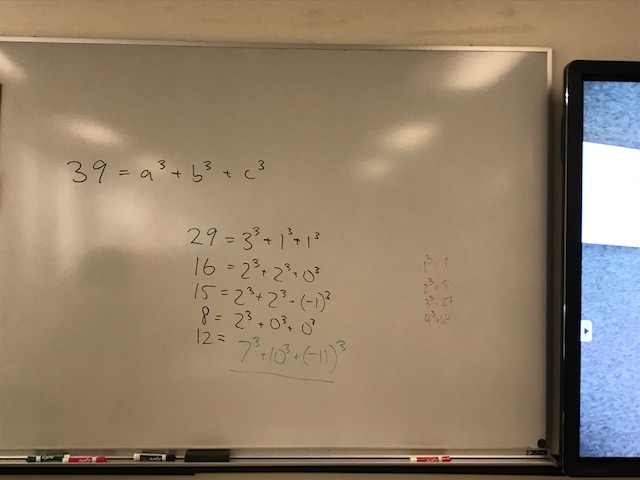 39 = a³ + b³ + c³
29 = 3³ + 1³ + 1³
16 = 2³ + 2³ + 0³
15 = 2³ + 2³ + (-1)³
8 = 2³ + 0³ + 0³
12 =
7³ + 10³ + (-11)³
1³ = 1
2³ = 8
3³ = 27